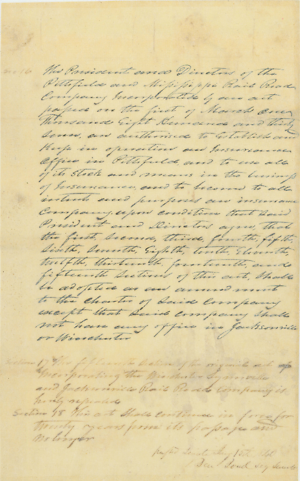 The President and Director of the
Pittsfield and Mississippi Rail Road
Company Incorporated by an act
passed on the first of March One
Thousand Eight Hundred and thirty
are authorised to Establish and
Keep in operation an Insurance
Office in Pittsfield and to use all
of its Stock and means in the business
of Insurance and to become to all
intents and purposes an insurance
Company upon condition that said
President and Director agree that
the first, second, third, fourth, fifth,
sixth, seventh, Eighth, tenth, Eleventh,
twelfth, thirteenth, fourteenth and
fifteenth Sections of this act, shall
be adopted as an amendment
to the Charter of Said Company
except that said Company shall
not have any office in Jacksonville
or Winchester
Section 17 The
incorporating the
and Jacksonville Rail Road Company is
hereby repealed
Section 18 This act shall continue in force for
twenty years from its passage and
no longer